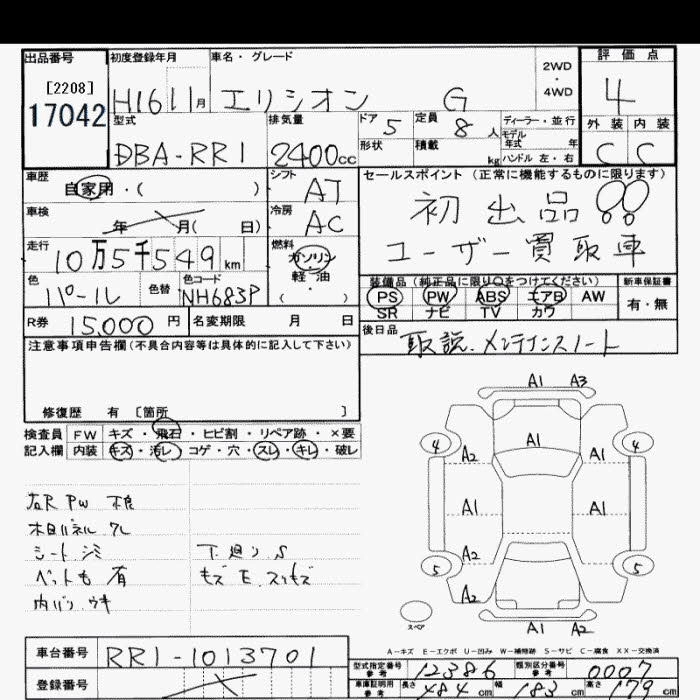 出品番号 初度登録年月 車名・グレード 2WD・4WD 評価点
[2208]
17042 H16 11月 エリシオン G 4
型式 排気量 ドア 5 定員 8人 ディーラー・並行 外装 内装
DBA-RR1 2400cc 形状 積載 kg モデル年式 年 C C
ハンドル 左・右
車歴 シフト セールスポイント (正常に機能するものに限ります)
自家用・( ) AT 初出品!!
車検 年 月( 日) 冷房 AC ユーザー買取車
走行 燃料
10万5千549km ガソリン
軽・油
( )
色 色替 色コード 装備品 (純正品に限り○をつけてください) 新車保証書
パール NH683P PS PW ABS エアB AW 有・無
SR ナビ TV カワ
R券 15,000円 名変期限 月 日 後日品
取説.メンテナンスノート
注意事項申告欄(不具合内容等は具体的に記入して下さい)
修復歴 有 [箇所 ]
検査員 FW キズ・飛石・ヒビ割・リペア跡・×要
記入欄 内装 キズ・汚レ・コゲ・穴・スレ・キレ・破レ
A1 A3
4 A2 A1 A2 4
A1 A1 A1
5 A2 A2 5
A1 A2
スペア
右R PW 不良
木目パネル クレ
シート シミ 下廻り S
ペット毛 有 キズ E.スリキズ
内バリ ウキ
A-キズ E-エクボ U-凹み W-補修跡 S-サビ C-腐食 XX-交換済
車台番号 RR1-1013701
型式指定番号 参考 12386 類別区分番号 参考 0007
登録番号
車庫証明用 参考 長さ 484cm 幅 183cm 高さ 179cm